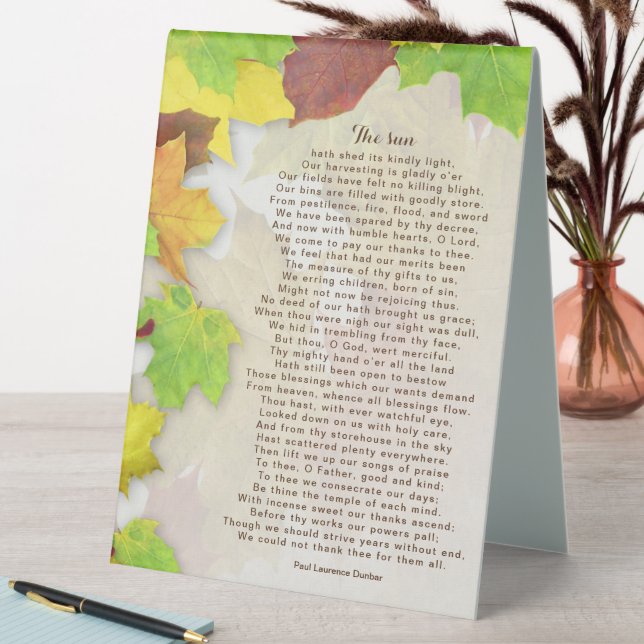 The sun
hath shed its kindly light,
Our harvesting is gladly o'er
Our fields have felt no killing blight,
Our bins are filled with goodly store.
From pestilence, fire, flood, and sword
We have been spared by thy decree,
And now with humble hearts, O Lord,
We come to pay our thanks to thee.
We feel that had our merits been
The measure of thy gifts to us,
We erring children, born of sin,
Might not now be rejoicing thus.
No deed of our hath brought us grace;
When thou were nigh our sight was dull,
We hid in trembling from thy face,
But thou, O God, wert merciful.
Thy mighty hand o'er all the land
Hath still been open to bestow
Those blessings which our wants demand
From heaven, whence all blessings flow.
Thou hast, with ever watchful eye,
Looked down on us with holy care,
And from thy storehouse in the sky
Hast scattered plenty everywhere.
Then lift we up our songs of praise
To thee, O Father, good and kind;
To thee we consecrate our days;
Be thine the temple of each mind.
With incense sweet our thanks ascend;
Before thy works our powers pall;
Though we should strive years without end,
We could not thank thee for them all.
Paul Laurence Dunbar